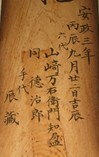 安政三年
丙辰九月廿二日吉辰
六代
山崎万右衛門知盈
同 徳治郎
手代 辰蔵